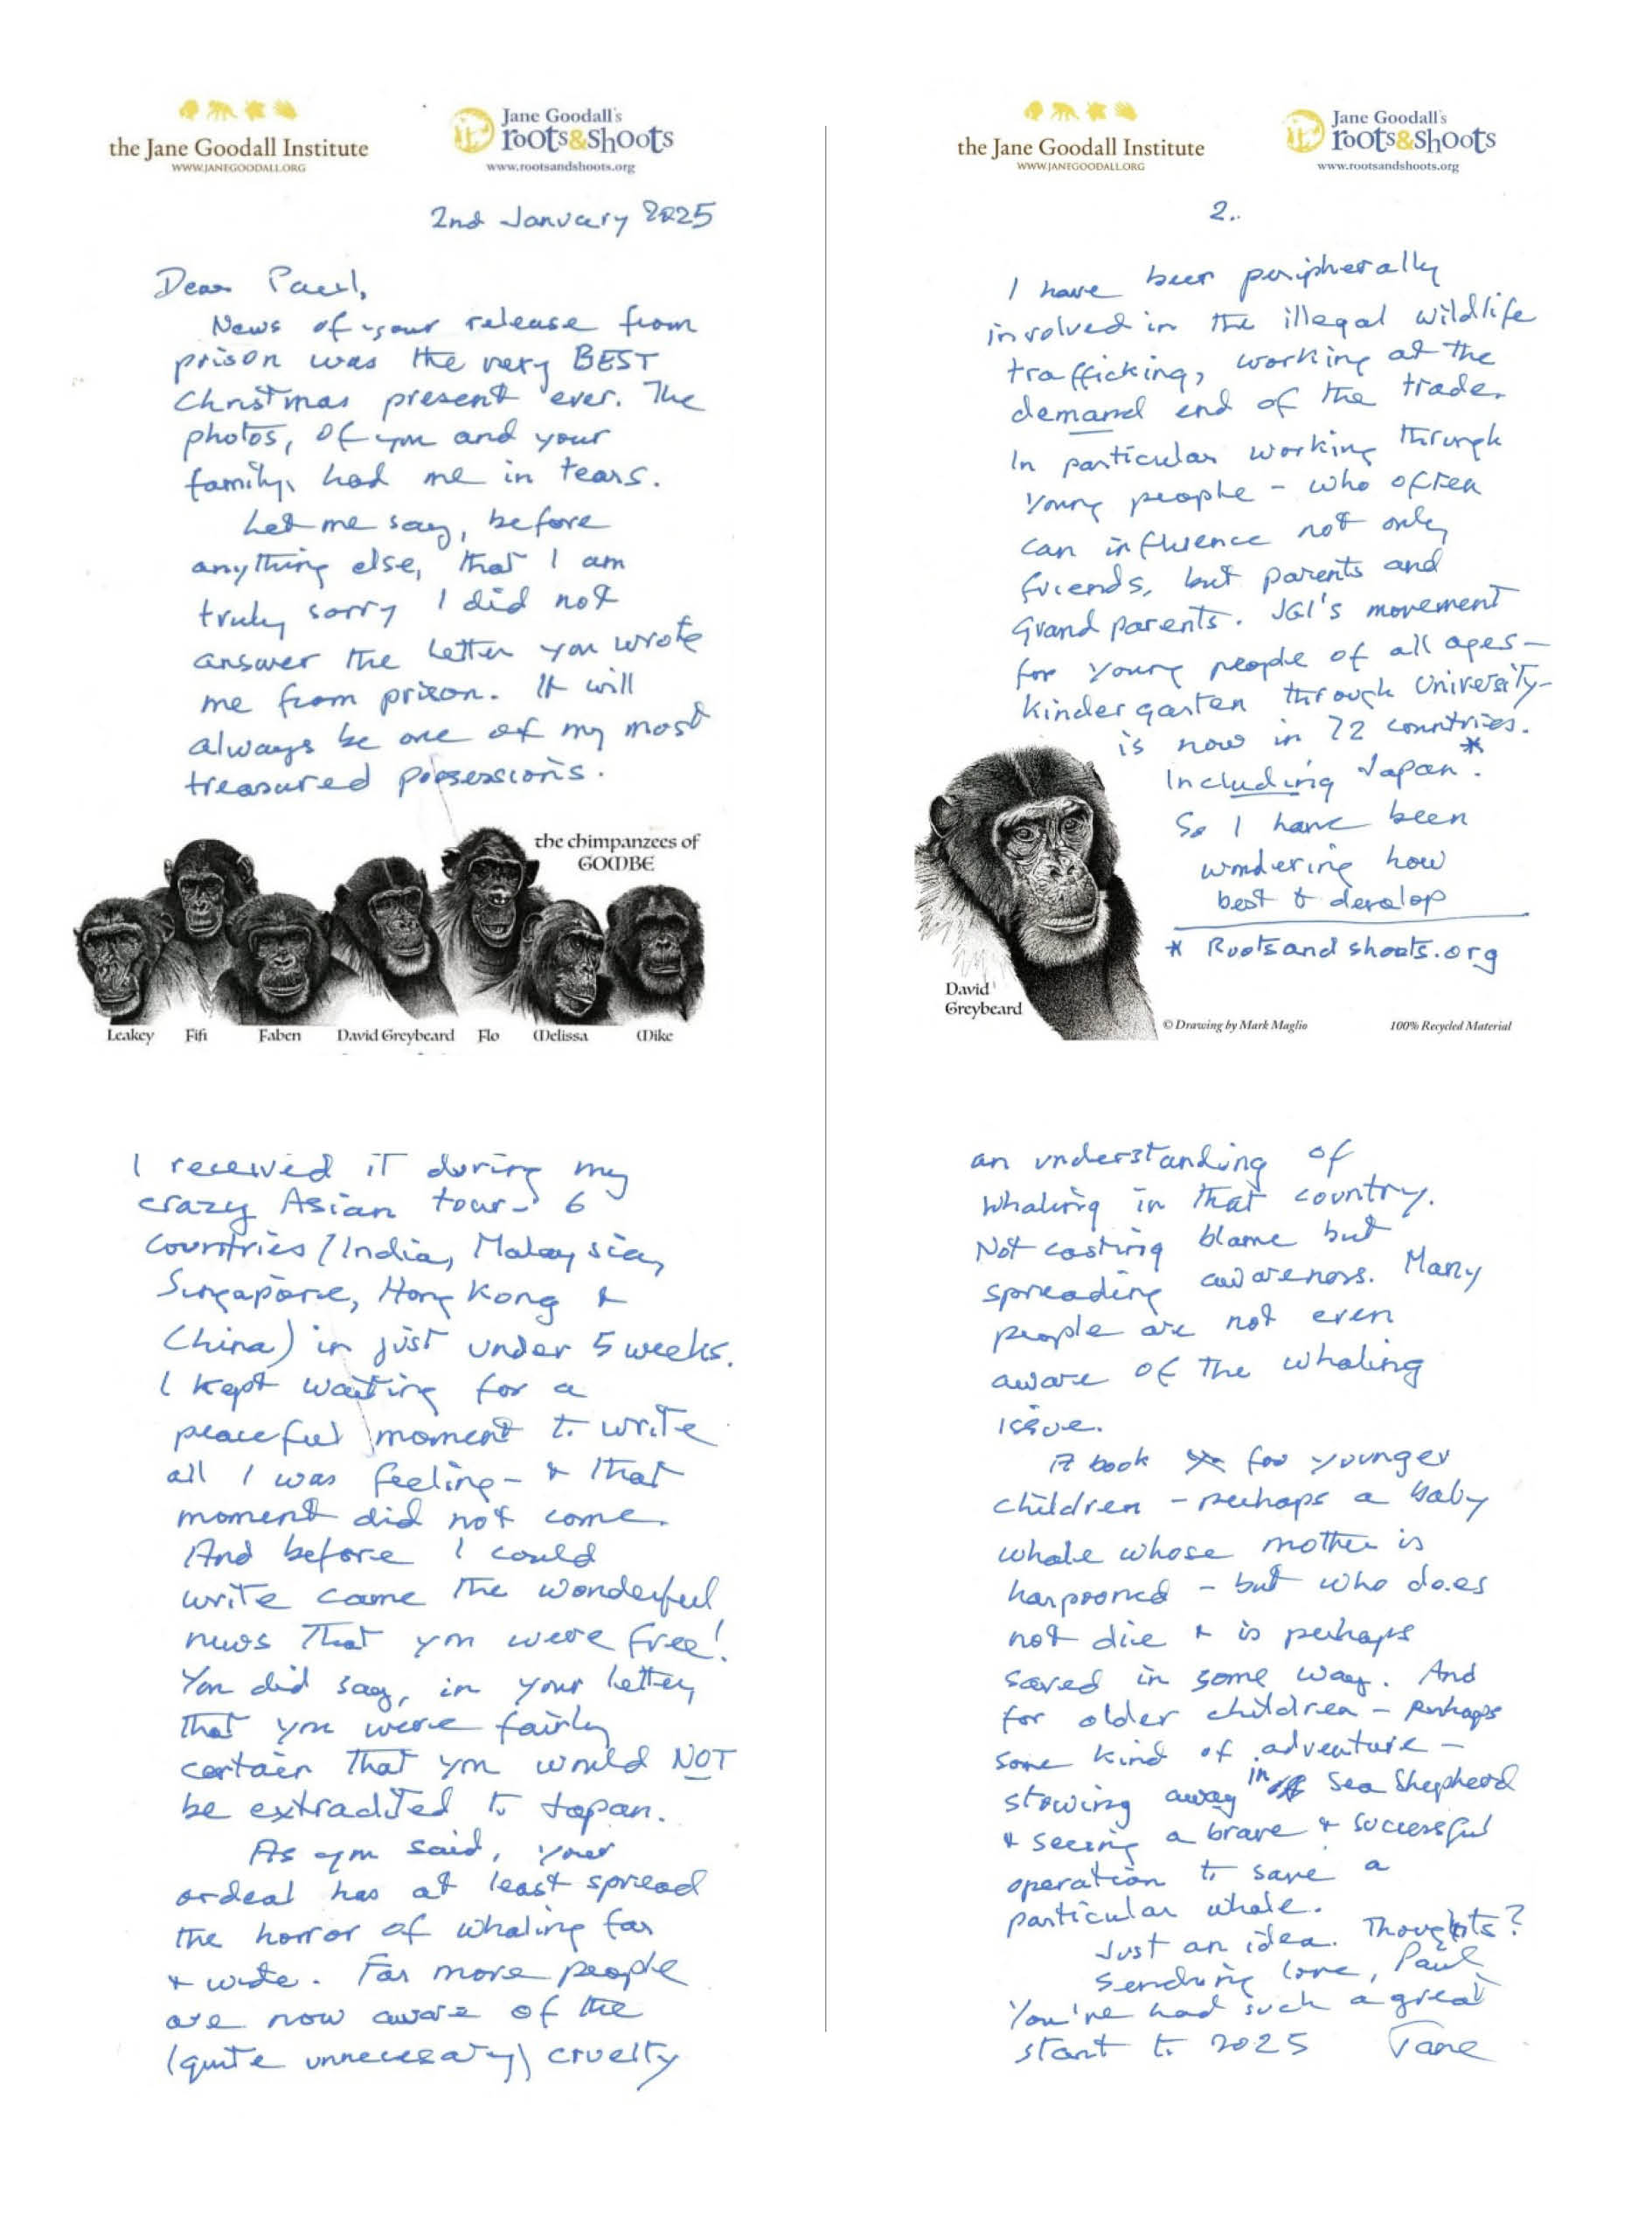 the Jane Goodall Institute
WWW.JANEGOODALL.ORG
Jane Goodall's
roots&shoots
www.rootsandshoots.org
2nd January 2025
Dear Paul,
News of your release from
prison was the very BEST
Christmas present ever. The
photos, of you and your
family, had me in tears.
Let me say, before
anything else, that I am
truly sorry I did not
answer the letter you wrote
me from prison. It will
always be one of my most
treasured possessions.
the chimpanzees of
GOMBE
Leakey Fifi Faben David Greybeard Flo Melissa Mike
I received it during my
crazy Asian tour - 6
countries (India, Malaysia,
Singapore, Hong Kong &
China) in just under 5 weeks.
I kept waiting for a
peaceful moment to write
all I was feeling - & that
moment did not come.
And before I could
write came the wonderful
news that you were free!
You did say, in your letter,
that you were fairly
certain that you would NOT
be extradited to Japan.
As you said, your
ordeal has at least spread
the horror of whaling far
& wide. Far more people
are now aware of the
(quite unnecessary) cruelty
the Jane Goodall Institute
WWW.JANEGOODALL.ORG
Jane Goodall's
roots&shoots
www.rootsandshoots.org
2.
I have been peripherally
involved in the illegal wildlife
trafficking, working at the
demand end of the trade.
In particular working through
young people - who often
can influence not only
friends, but parents and
Grand parents. JGI's movement
for young people of all ages -
kindergarten through University -
is now in 72 countries.
Including Japan.*
So I have been
wondering how
best to develop
* Rootsandshoots.org
David
Greybeard
© Drawing by Mark Maglio
100% Recycled Material
an understanding of
whaling in that country.
Not casting blame but
spreading awareness. Many
people are not even
aware of the whaling
issue.
A book for younger
children - perhaps a baby
whale whose mother is
harpooned - but who does
not die & is perhaps
saved in some way. And
for older children - perhaps
some kind of adventure -
stowing away in Sea Shepherd
& seeing a brave & successful
operation to save a
particular whale.
Just an idea. Thoughts?
Sending love, Paul
You've had such a great
start to 2025 Jane